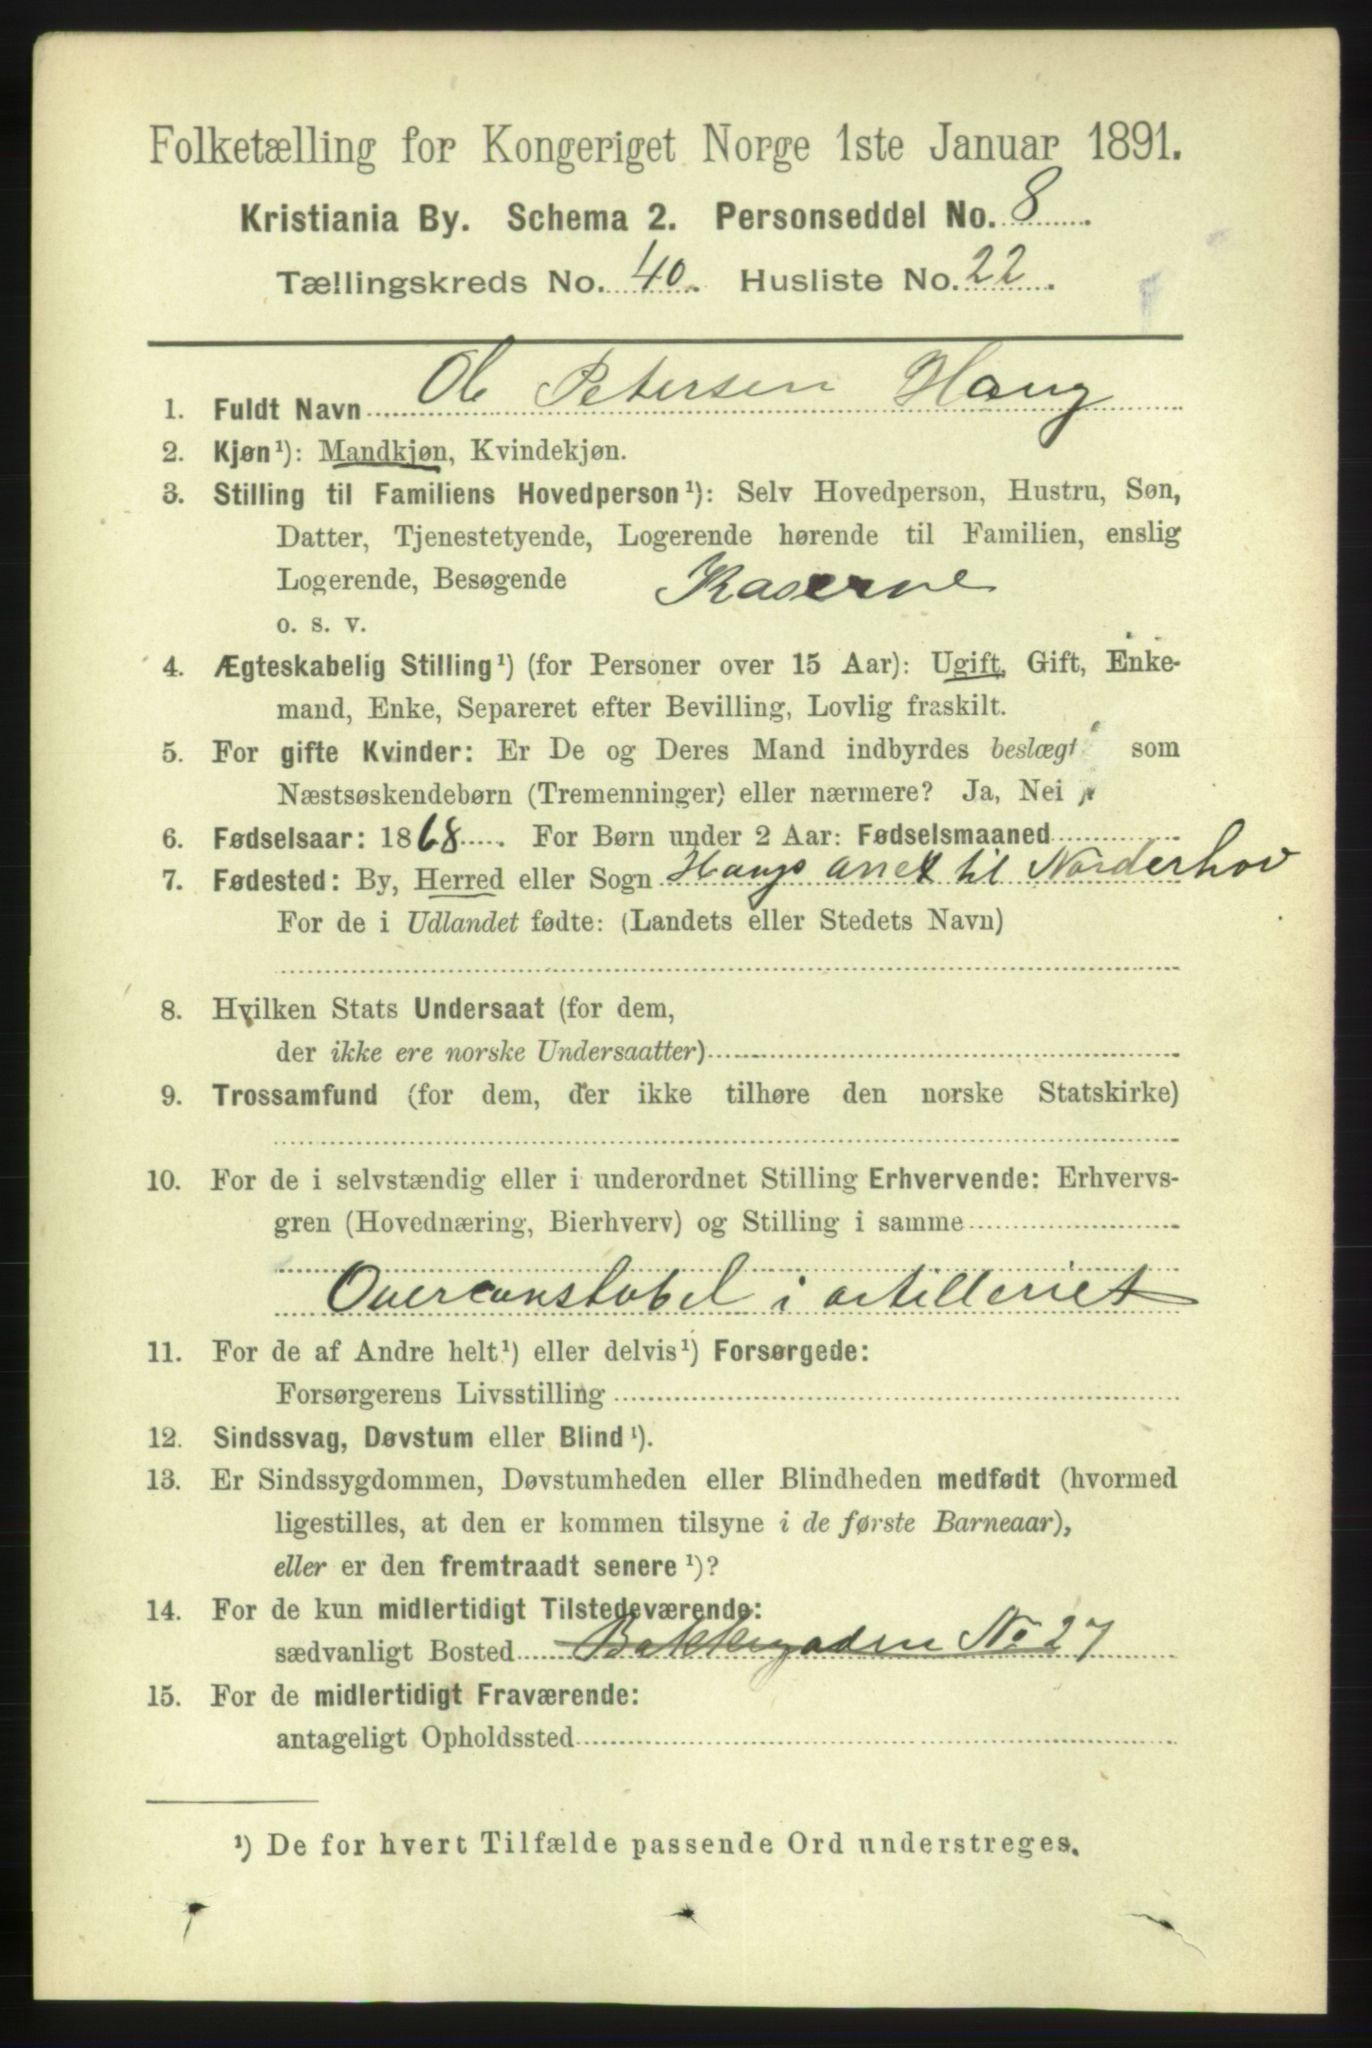 Folketælling for Kongeriget Norge 1ste Januar 1891.
Kristiania By. Schema 2. Personseddel No. 8
Tællingskreds No. 40. Husliste No. 22.
1. Fuldt Navn Ole Petersen Haug
2. Kjøn¹): Mandkjøn, Kvindekjøn.
3. Stilling til Familiens Hovedperson¹): Selv Hovedperson, Hustru, Søn,
Datter, Tjenestetyende, Logerende hørende til Familien, enslig
Logerende, Besøgende Kaserne
o. s. v.
4. Ægteskabelig Stilling¹) (for Personer over 15 Aar): Ugift, Gift, Enke-
mand, Enke, Separeret efter Bevilling, Lovlig fraskilt.
5. For gifte Kvinder: Er De og Deres Mand indbyrdes beslægt som
Næstsøskendebørn (Tremenninger) eller nærmere? Ja, Nei
6. Fødselsaar: 1868. For Børn under 2 Aar: Fødselsmaaned
7. Fødested: By, Herred eller Sogn Haugs anex til Norderhov
For de i Udlandet fødte: (Landets eller Stedets Navn)
8. Hvilken Stats Undersaat (for dem,
der ikke ere norske Undersaatter)
9. Trossamfund (for dem, der ikke tilhøre den norske Statskirke)
10. For de i selvstændig eller i underordnet Stilling Erhvervende: Erhvervs-
gren (Hovednæring, Bierhverv) og Stilling i samme
Overconstabel i artilleriet
11. For de af Andre helt¹) eller delvis¹) Forsørgede:
Forsørgerens Livsstilling
12. Sindssvag, Døvstum eller Blind¹).
13. Er Sindssygdommen, Døvstumheden eller Blindheden medfødt (hvormed
ligestilles, at den er kommen tilsyne i de første Barneaar),
eller er den fremtraadt senere¹)?
14. For de kun midlertidigt Tilstedeværende:
sædvanligt Bosted Bakkegaden No 27
15. For de midlertidigt Fraværende:
antageligt Opholdssted
¹) De for hvert Tilfælde passende Ord understreges.